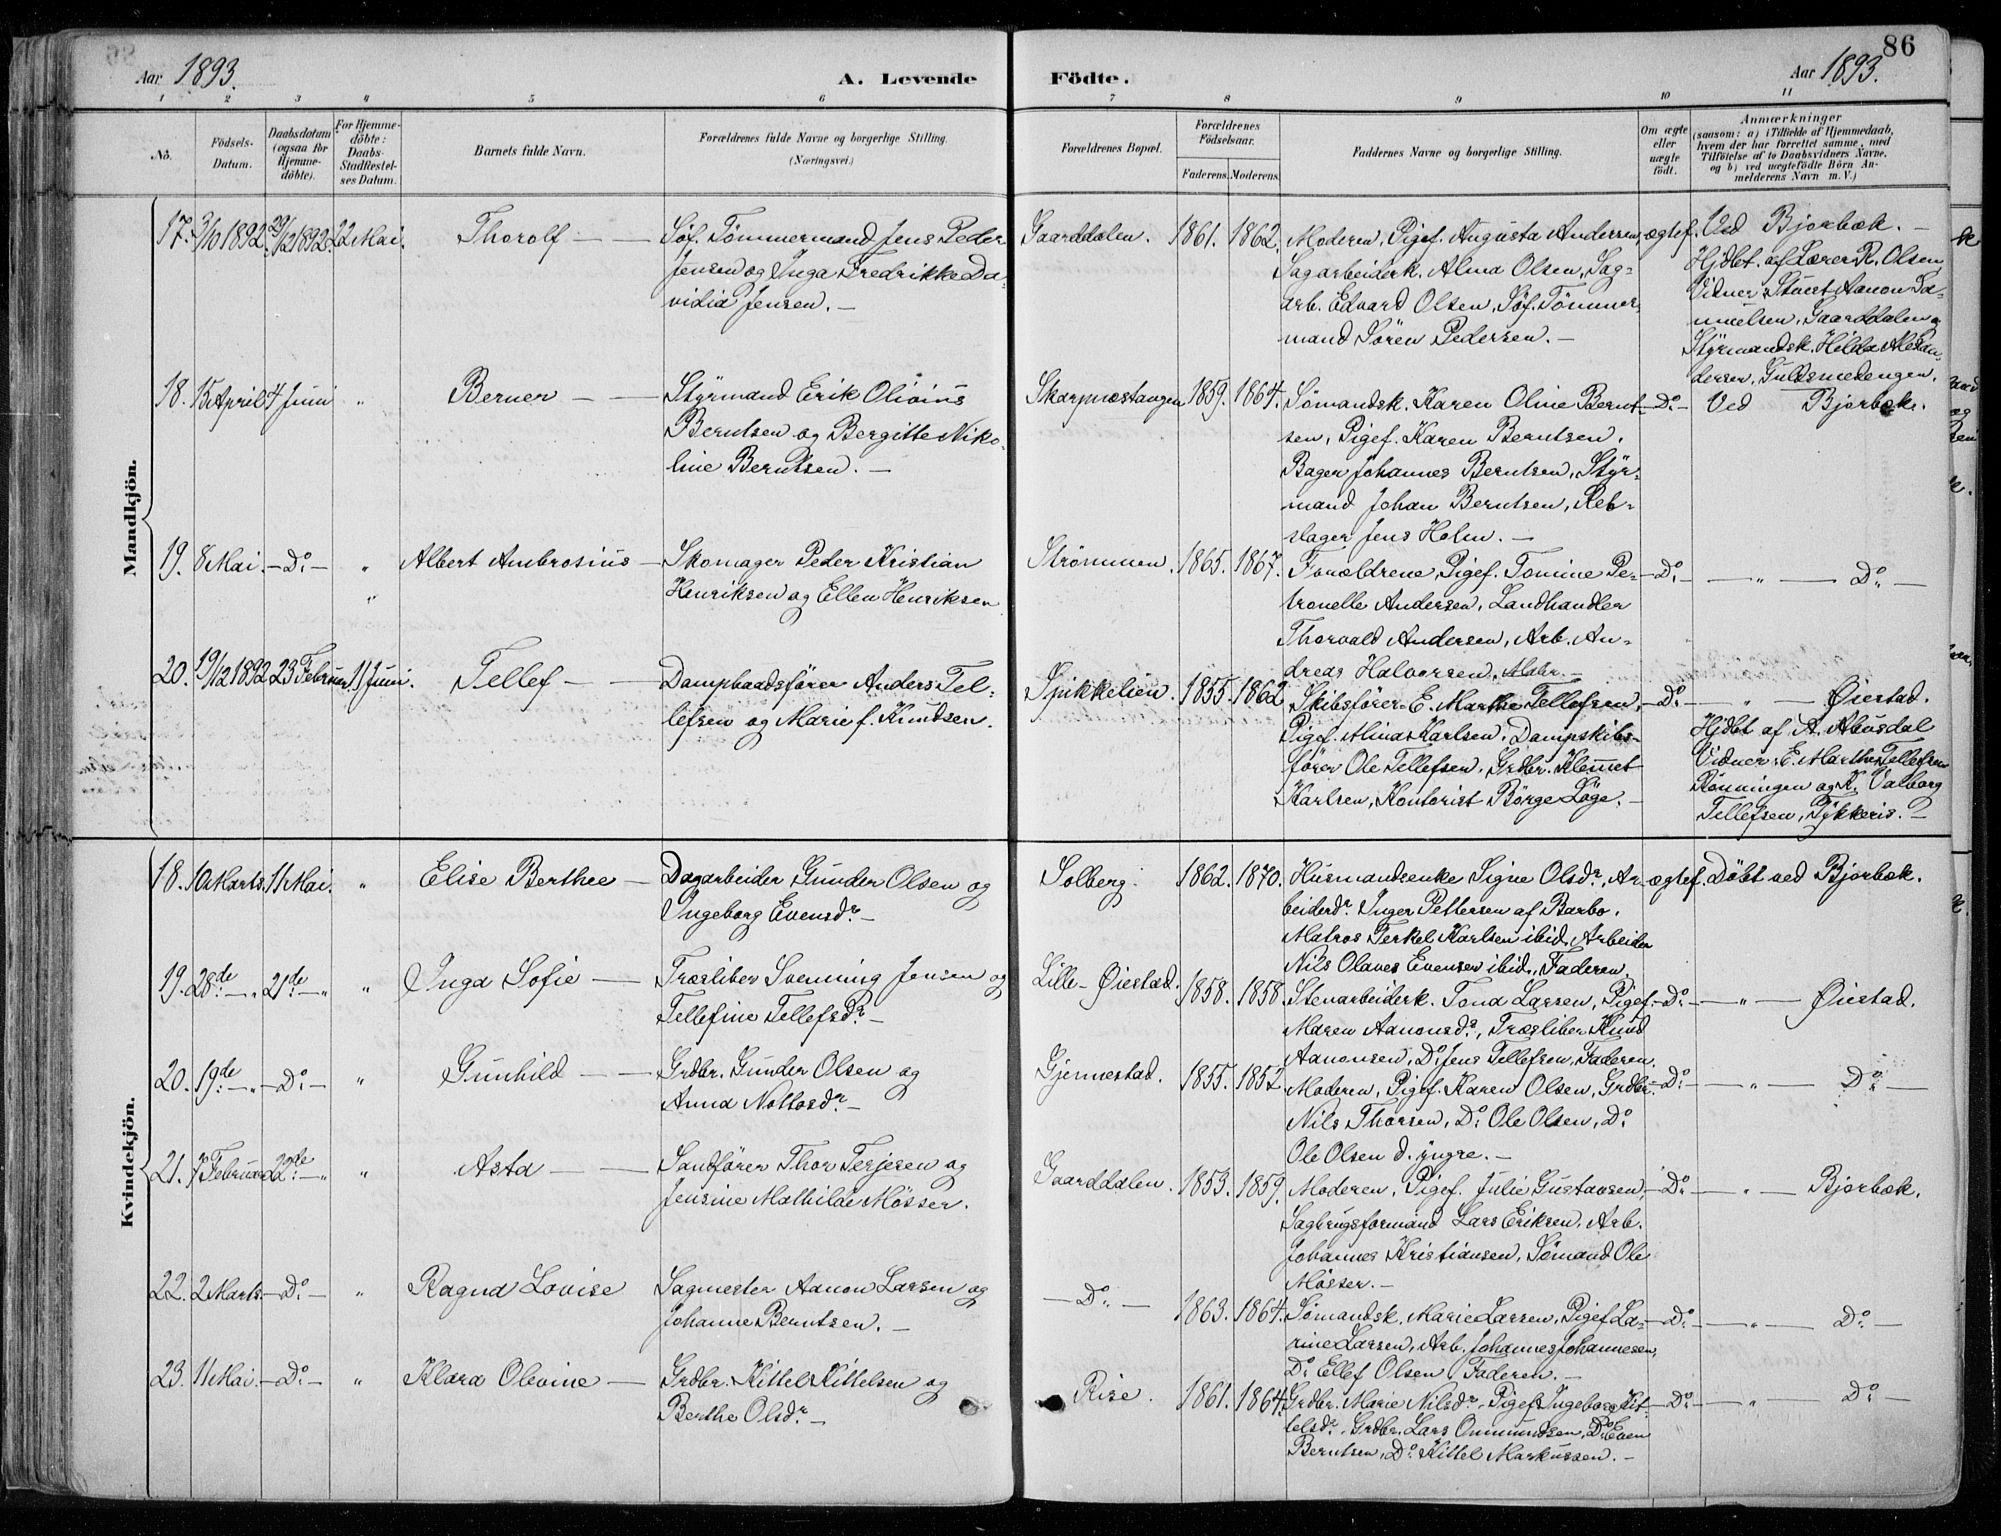 86
Aar 1893.
A. Levende Födte.
Aar 1893.
1 2 3 4 5 6 7 8 9 10 11
No.
Födsels-
Datum.
Daabsdatum
(ogsaa for
Hjemme-
döbte).
For Hjemme-
döbte:
Daabs-
Stadfæstel-
ses Datum.
Barnets fulde Navn.
Forældrenes fulde Navne og borgerlige Stilling.
(Næringsvei.)
Forældrenes Bopæl.
Forældrenes
Födselsaar.
Faderens. Moderens.
Faddernes Navne og borgerlige Stilling.
Om ægte
eller
uægte
født.
Anmærkninger
(saasom: a) i Tilfælde af Hjemmedaab,
hvem der har forrettet samme, med
Tilföielse af to Daabsvidners Navne,
og b) ved uægtefödte Börn An-
melderens Navn m. V.)
Mandkjön.
17. 3/10 1892. 29/12 1892. 22 Mai. Thorolf
Søf. Tømmermand Jens Peder
Jensen og Inga Fredrikke Da-
vidia Jensen.
Gaarddalen. 1861. 1862.
Moderen, Pigef. Augusta Andersen,
Sagarbeiderk. Alma Olsen, Sag-
arb. Edvard Olsen, Søf. Tømmer-
mand Søren Pedersen.
ægtef.
Ved Bjorbæk.
Hjdbt. af Lærer R. Olsen
Vidner: Stuert Aanon Sa-
muelsen, Gaarddalen og
Styrmandsk. Hilda
Guldsmedengen.
18. 15 April 4 Juni " Berner
Styrmand Erik Olivius
Berntsen og Bergitte Niko-
line Berntsen.
Skarpnæstangen 1859. 1864.
Sømandsk. Karen Oline Bernt-
sen, Pigef. Karen Berntsen,
Bager Johannes Berntsen, Styr-
mand Johan Berntsen, Reb-
slager Jens Holm.
Do. Ved Bjorbæk.
19. 8 Mai. Do. " Albert Ambrosius
Skomager Peder Kristian
Henriksen og Ellen Henriksen
Strömmen. 1865. 1867.
Forældrene, Pigef. Tomine Pe-
tronelle Andersen, Landhandler
Thorvald Andersen, Arb. An-
dreas Halvorsen,
Do. " Do.
20. 19/12 1892 23 Februar. 11 Juni. Tellef
Dampbaadsfører Anders Tel-
lefsen og Marie f. Knudsen.
Spikkelien. 1855. 1862
Skibsfører E. Marthe Tellefsen,
Pigef. Mina Karlsen, Dampskibs-
fører Ole Tellefsen, Grdbr. Klemet
Karlsen, Kontorist Børge Løge.
Do. " Øiestad.
Hjdbt af A. Abusdal
Vidner: E. Marthe Tellefsen
Rönningen og K. Valborg
Tellefsen,
Kvindekjön.
18. 10 Marts. 11 Mai. " Elise Berthee
Dagarbeider Gunder Olsen og
Ingeborg Evensdr.
Solberg. 1862. 1870.
Husmandsenke Signe Olsdr., Ar-
beiderdr. Inger Pettersen af Barbo.
Matros Terkel Karlsen ibid, Arbeider
Nils Olaves Evensen ibid., Faderen.
ægtef. Döbt ved Bjorbæk.
19. 28de " 21de " " Inga Sofie
Træsliber Svenning Jensen og
Tellefine Tellefsdr.
Lille-Øiestad. 1858. 1858.
Stenarbeiderk. Tona Larsen, Pigef.
Maren Aanonsdr., Træsliber Knud
Aanonsen, Do. Jens Tellefsen, Faderen.
Do. " Øiestad.
20. 19de " Do. " Gunhild
Grdbr. Gunder Olsen og
Anna Nottosdr.
Gjennestad. 1855. 1852.
Moderen, Pigef. Karen Olsen, Grdbr.
Nils Thorsen, Do. Ole Olsen, Do.
Ole Olsen d. yngre.
Do. " Do.
21. 7 Februar 22de " " Asta
Sandfører Thor Terjesen og
Jensine Mathilde Møsser.
Gaarddalen. 1853. 1859.
Moderen, Pigef. Julie Gustavsen,
Sagbrugsformand Lars Eriksen, Arb.
Johannes Kristiansen, Sømand Ole
Møsser.
Do. " Bjorbæk.
22. 2 Marts. Do. " Ragna Lovise
Sagmester Aanon Larsen og
Johanne Berntsen.
Do. 1863. 1864.
Sømandsk. Marie Larsen, Pigef. La-
rine Larsen, Arb. Johannes Johannesen,
Do. Ellef Olsen, Faderen.
Do. " Do.
23. 11 Mai. Do. " Klara Olevine
Grdbr. Kittel Kittelsen og
Berthe Olsdr.
Rise. 1861. 1864.
Grdbr. Marie Nilsdr., Pigef. Ingeborg Kit-
telsdr., Grdbr. Lars Ommundsen, Do. Even
Berntsen, Do. Kittel Markussen.
Do. " Do.